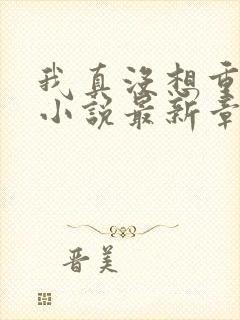 我真没想重
小说最新章
晋美